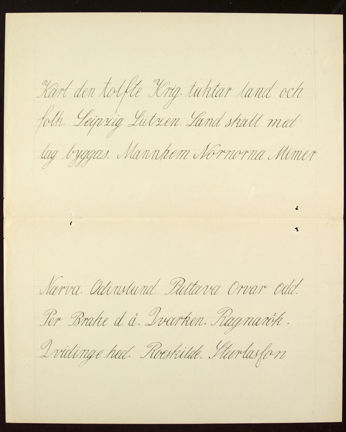 Karl den tolfte Krig tuktar land och
folk. Leipzig Lützen Land skall med
lag byggas. Mannhem Nornorna Mimer
Narva Odinslund Pultava Orvar Odd.
Per Brahe d ä. Qvarken. Ragnarök.
Qvidinge hed. Roeskilde. Sturlasson